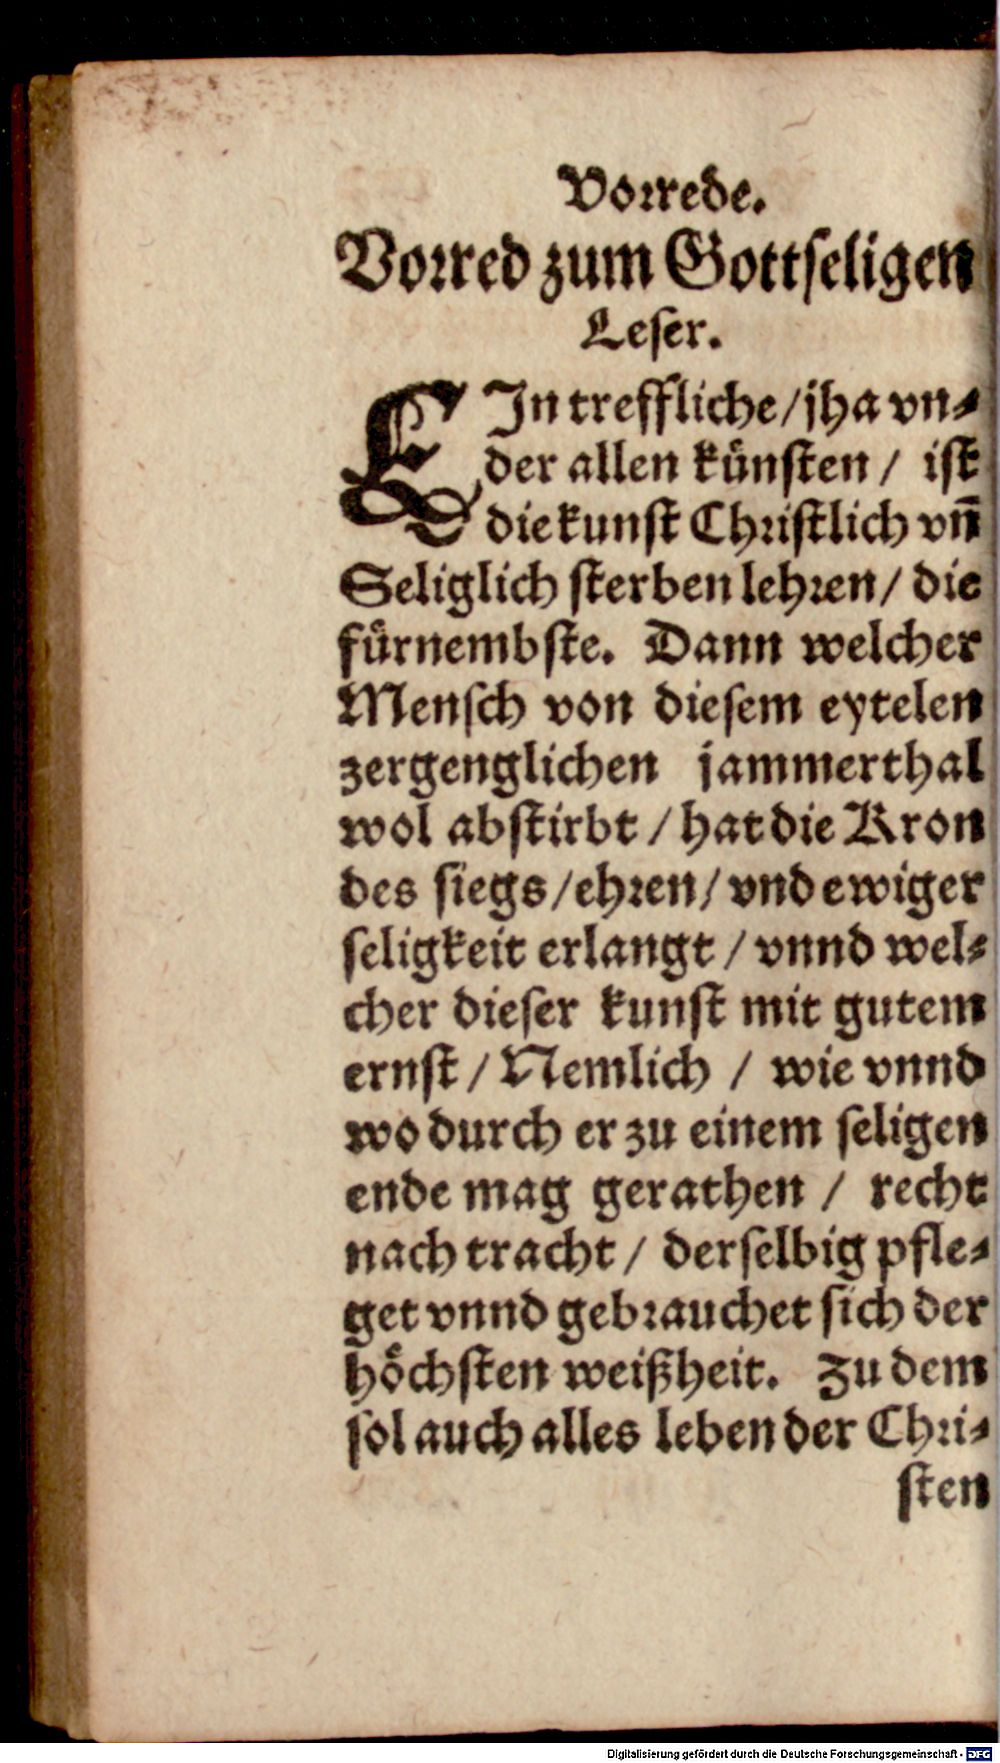 Vorrede.
Vorred zum Gottseligen
Leser.
EIn treffliche / jha vn⸗
der allen künsten / ist
die kunst Christlich vn̄
Seliglich sterben lehren / die
fürnembste. Dann welcher
Mensch von diesem eytelen
zergenglichen jammerthal
wol abstirbt / hat die Kron
des siegs / ehren / vnd ewiger
seligkeit erlangt / vnnd wel⸗
cher dieser kunst mit gutem
ernst / Nemlich / wie vnnd
wo durch er zu einem seligen
ende mag gerathen / recht
nach tracht / derselbig pfle⸗
get vnnd gebrauchet sich der
höchsten weißheit. Zu dem
sol auch alles leben der Chri⸗
sten
Digitalisierung gefördert durch die Deutsche Forschungsgemeinschaft - DFG